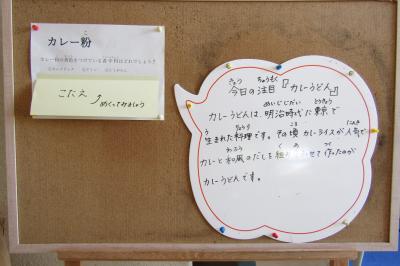 カレー粉
カレー粉の黄色をつけている香辛料はどれでしょう?
こたえ
めくってみましょう
今日の注目『カレーうどん』
カレーうどんは、明治時代に東京で
生まれた料理です。その頃カレーライスが人気で
カレーと和風のだしを組み合わせて作ったのが
カレーうどんです。